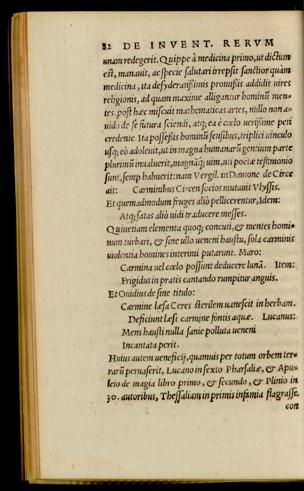 82 DE INVENT. RERVM
unam redegerit. Quippe à medicina primo, ut dictum
est, manauit, ac specie salutari irrepsit sanctior quàm
medicina, ita desyderatissimis promissis addidit uires
religionis, ad quam maxime alligantur hominũ men-
tes. post hæc miscuit mathematicas artes, nullo non a-
uido de se futura sciendi, atq; ea è cœlo uerissime peti
credente. Ita possessis hominũ sensibus, triplici uinculo
usq; eò adoleuit, ut in magna humanarũ gentium parte
plurimũ inualuerit, magnãq; uim, uti poetæ testimonio
sunt, semp habuerit: nam Vergil. in Damone de Circe
ait: Carminibus Circen socios mutauit Vlyssis.
Et quemadmodum fruges aliò pellicerentur, Idem:
Atq; satas aliò uidi traducere messes.
Quinetiam elementa quoq; concuti, & mentes homi-
num turbari, & sine ullo ueneni haustu, sola carminis
uiolentia homines interimi putarunt. Maro:
Carmina uel cœlo possunt deducere lunã. Item:
Frigidus in pratis cantando rumpitur anguis.
Et Ouidius de sine titulo:
Carmine læsa Ceres sterilem uanescit in herbam.
Deficiunt læsi carmine fontis aquæ. Lucanus:
Mens hausti nulla sanie polluta ueneni
Incantata perit.
Huius autem ueneficij, quamuis per totum orbem ter-
rarũ peruaserit, Lucano in sexto Pharsaliæ, & Apu-
leio de magia libro primo, & secundo, & Plinio in
30. autoribus, Thessaliam in primis infamia flagrasse
con